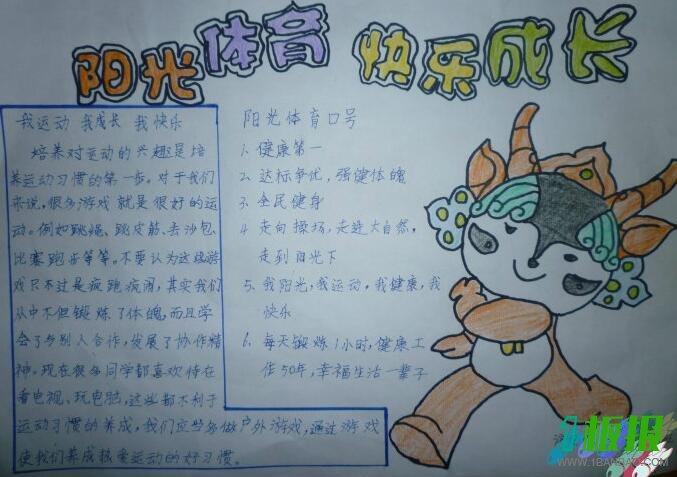 阳光体育 快乐成长
我运动 我成长 我快乐
培养对运动的兴趣是培
养运动习惯的第一步。对于我们
来说,很多游戏就是很好的运
动。例如跳绳、跳皮筋、丢沙包、
比赛跑步等等。不要认为这些游
戏只不过是疯跑疯闹,其实我们
从中不但锻炼了体魄,而且学
会了与别人合作,发展了协作精
神。现在很多同学都喜欢待在
看电视、玩电脑,这些都不利于
运动习惯的养成,我们应当多做户外游戏,通过游戏
使我们养成热爱运动的好习惯。
阳光体育口号
1、健康第一
2、达标争优,强健体魄
3、全民健身
4、走向操场,走进大自然,
走到阳光下
5、我阳光,我运动,我健康,我
快乐
6、每天锻炼1小时,健康工
作50年,幸福生活一辈子
板报
WWW.1BANBAO.COM